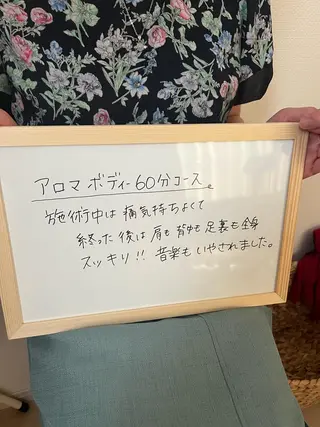 アロマ ボディー 60分コース。
施術中は 痛気持ちよくて
終った後は 肩も 背中も 足裏も 全身
スッキリ!! 音楽も いやされました。